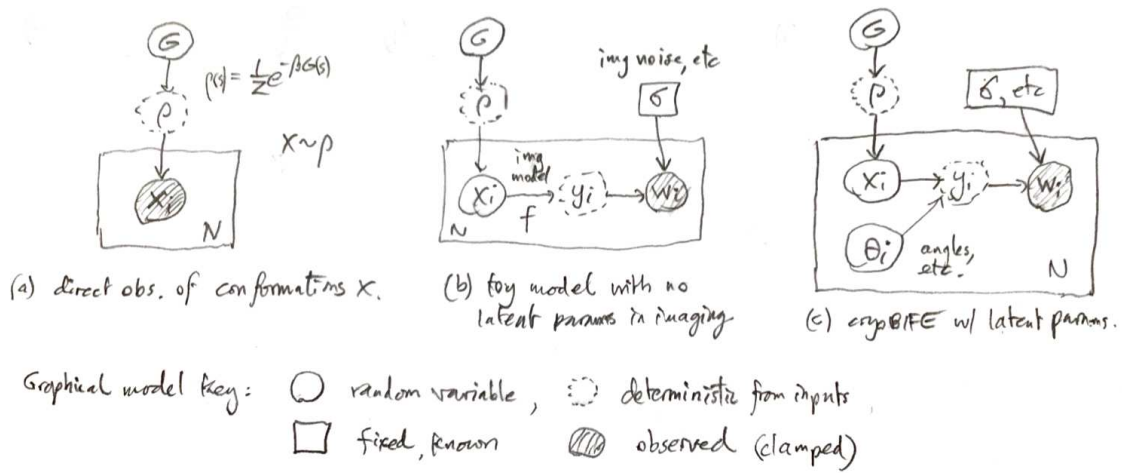 G
ρ(s) = 1/Z e^{-βG(s)}
ρ
x~ρ
x_i
N
(a) direct obs. of conformations x.
G
img noise, etc
ρ
σ
img
model
x_i
y_i
w_i
f
N
(b) toy model with no
latent params in imaging
G
ρ
σ, etc
x_i
y_i
w_i
θ_i
angles,
etc.
N
(c) cryoBIFE w/ latent params.
Graphical model key: random variable, deterministic from inputs
fixed, known observed (clamped)